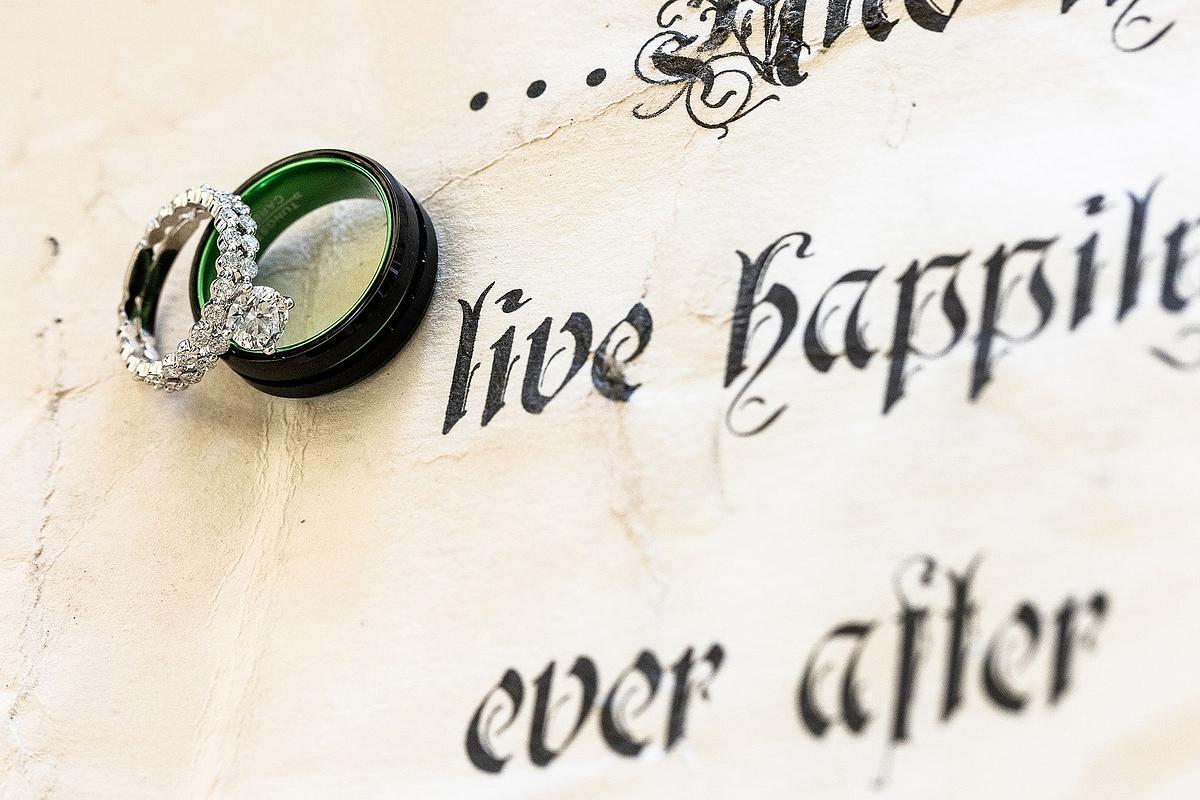 ...And
live happily
ever after